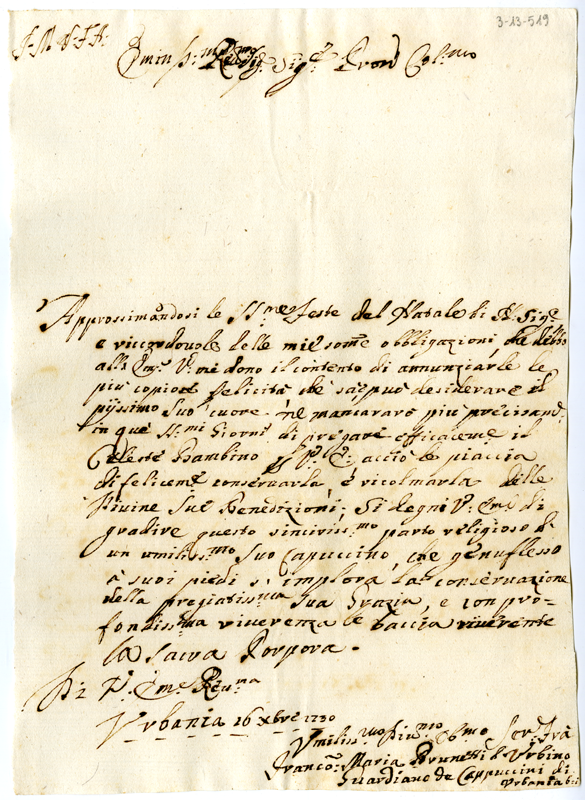 3-13-519
J. M. V. F. A.
Emin.mo Sig.r Sig.r Pron Col.mo
Approssimandosi le SS.me Feste del Natale di N. Sig.re
e ricordevole delle mie somme obbligazioni, che debbo
alla Em.a V.a mi dono il contento di annunziarle le
più copiose felicità che sa, e può desiderare il
pijssimo Suo cuore. nè mancarò più precisam.e
in què SS.mi Giorni di pregare efficacem.e il
Celeste Bambino p V. E. acciò le piaccia
di felicem.e conservarla, è ricolmarla delle
Divine Sue Benedizioni; Si degni V. Em.a di
gradire questo sinceriss.mo parto religioso d'
un umiliss.mo Suo Capuccino, che genuflesso
a' suoi piedi si implora la conservazione
della pregiatiss.ma Sua Grazia, e con pro-
fondiss.ma riverenza le baccia riverente
la Sacra Porpora.
Di V. Em.a Rev.ma
Vrbania 16 Xbre 1730
Vmiliss.mo Div.mo Obb.mo Ser. Frà
Franco. Maria Brunetti d'Vrbino
Guardiano de Cappuccini di
Vrbania